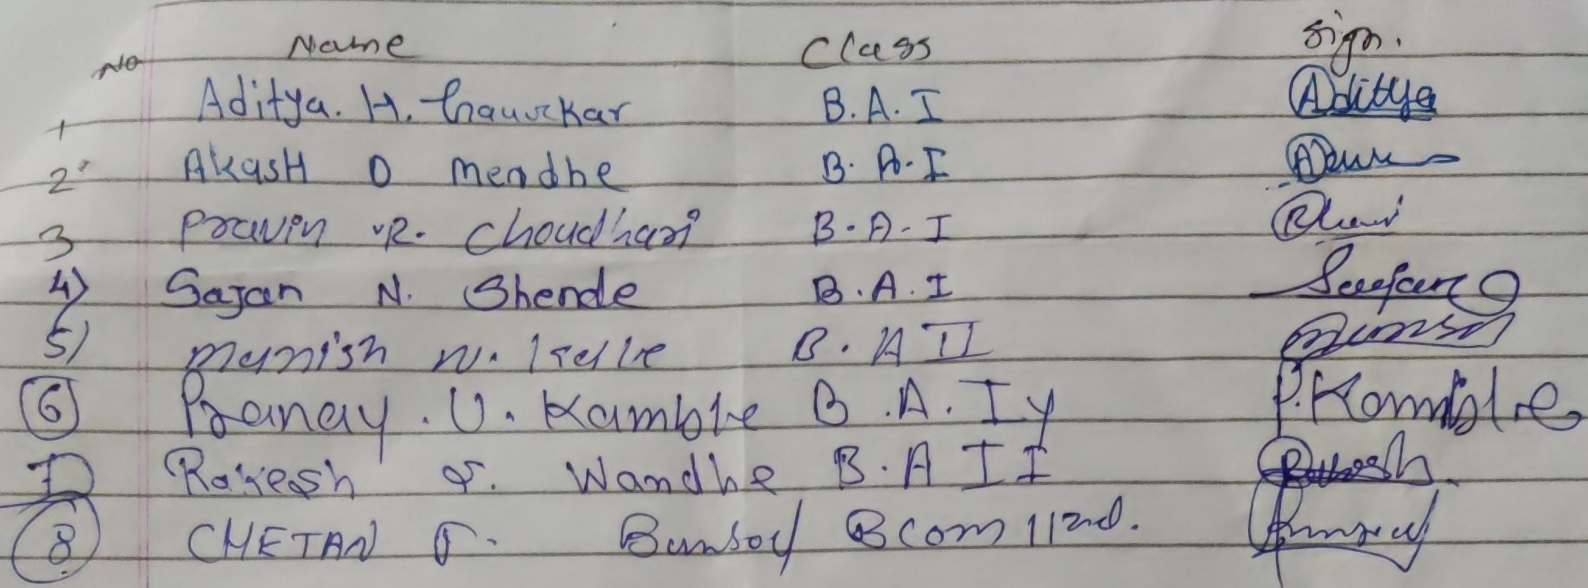 No Name Class Sign.
1 Aditya. H. Gaurkar B.A.I Aditya
2 Akash D Mendhe B.A.I
3 Pravin R. Choudhari B.A.I
4) Sajan N. Shende B.A.I Saajan
5) Manish N. B.A II
6 Pranay. U. Kamble B.A.I y P.Kamble
7 Rakesh S. Wandhe B.A II Rakesh
8 CHETAN Bansod Bcom II 2nd. Bansod